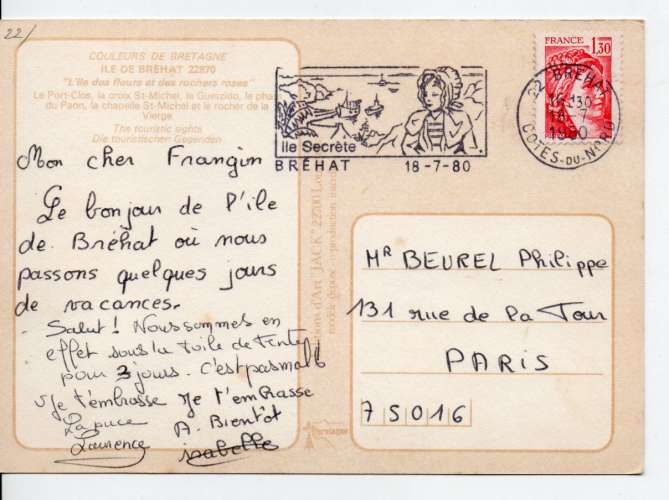 22/
COULEURS DE BRETAGNE
ILE DE BRÉHAT 22870
"L'île des fleurs et des rochers roses"
Le Port-Clos, la croix St-Michel, le Guerzido, le phare
du Paon, la chapelle St-Michel et le rocher de la
Vierge
The touristic sights
Die touristischen Gegenden
Mon cher Frangin
Le bonjour de l'île
de Bréhat où nous
passons quelques jours
de vacances.
Salut! Nous sommes en
effet sous la toile de tente
pour 3 jours. C'est pas mal
Je t'embrasse Je t'embrasse
La puce A. Bientôt
Laurence isabelle
Ile Secrète
BRÉHAT 18-7-80
FRANCE
1,30
22 BRÉHAT
18-7
1980
CÔTES-DU-NORD
d'Art "JACK" 22700
Mr BEUREL Philippe
131 rue de la Tour
PARIS
75016